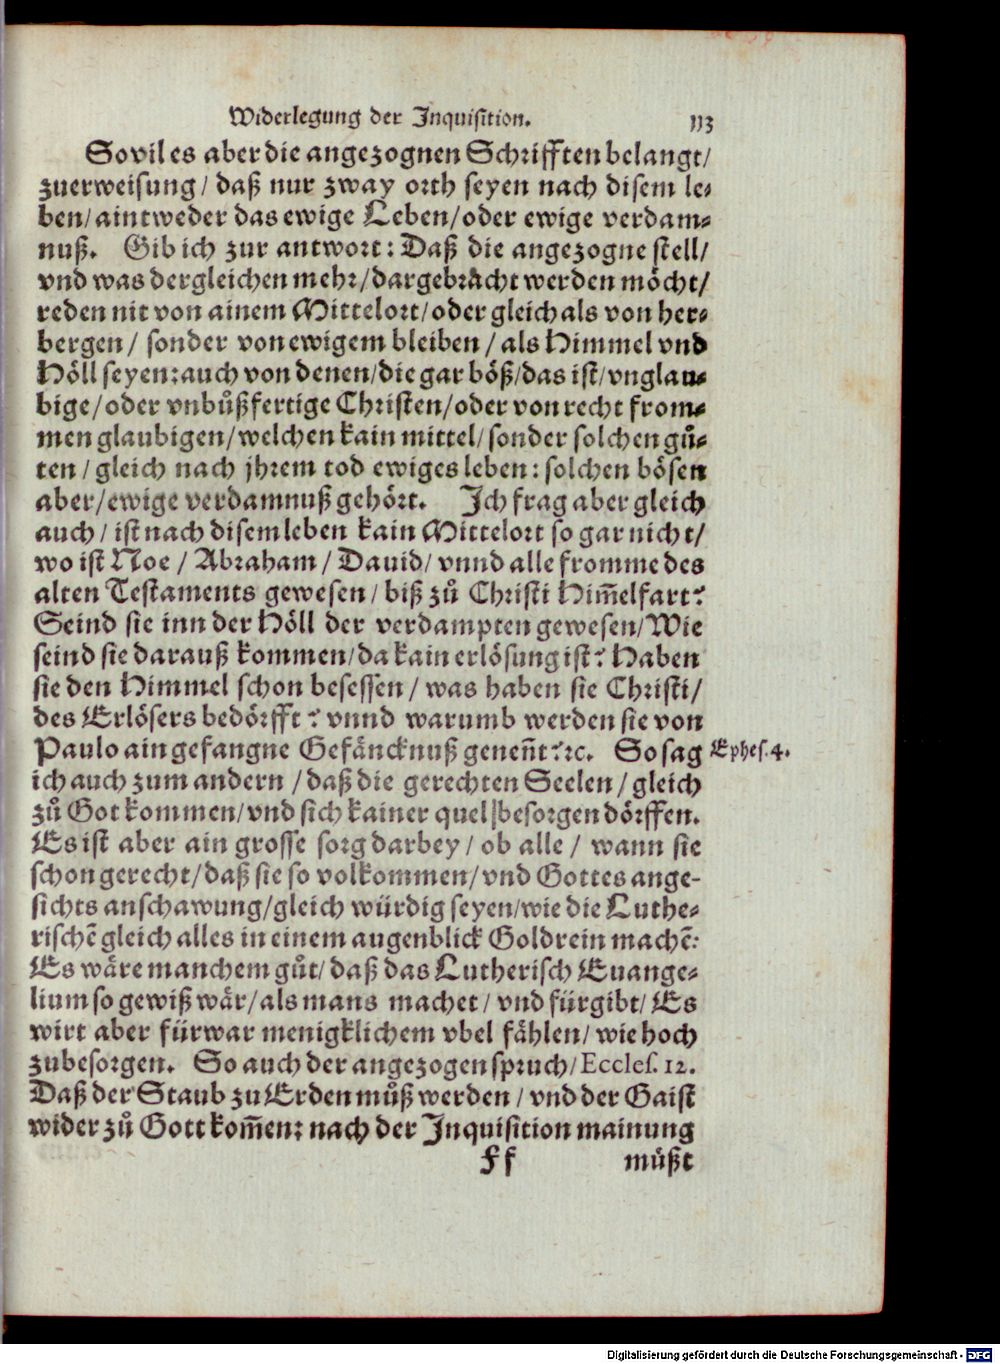 Widerlegung der Inquisition. 113
So vil es aber die angezognen Schrifften belangt/
zuerweisung/ daß nur zway orth seyen nach disem le-
ben/ aintweder das ewige Leben/ oder ewige verdam-
nuß. Gib ich zur antwort: Daß die angezogne stell/
vnd was dergleichen mehr/ dargebrácht werden möcht/
reden nit von ainem Mittelort/ oder gleich als von her-
bergen/ sonder von ewigem bleiben/ als Himmel vnd
Höll seyen: auch von denen/ die gar böß/ das ist/ vnglau-
bige/ oder vnbůßfertige Christen/ oder von recht from-
men glaubigen/ welchen kain mittel/ sonder solchen gů-
ten/ gleich nach jhrem tod ewiges leben: solchen bösen
aber/ ewige verdamnuß gehört. Ich frag aber gleich
auch/ ist nach disem leben kain Mittelort so gar nicht/
wo ist Noe/ Abraham/ Dauid/ vnnd alle fromme des
alten Testaments gewesen/ biß zů Christi Him̄elfart?
Seind sie inn der Höll der verdampten gewesen/ Wie
seind sie darauß kommen/ da kain erlösung ist? Haben
sie den Himmel schon besessen/ was haben sie Christi/
des Erlösers bedörfft? vnnd warumb werden sie von
Paulo ain gefangne Gefäncknuß geneñt? ꝛc. So sag
Ephes. 4.
ich auch zum andern/ daß die gerechten Seelen/ gleich
zů Got kommen/ vnd sich kainer quel besorgen dörffen.
Es ist aber ain grosse sorg darbey/ ob alle/ wann sie
schon gerecht/ daß sie so volkommen/ vnd Gottes ange-
sichts anschawung/ gleich würdig seyen/ wie die Luthe-
rischē gleich alles in einem augenblick Goldrein machē:
Es wäre manchem gůt/ daß das Lutherisch Euange-
lium so gewiß wär/ als mans machet/ vnd fürgibt/ Es
wirt aber fürwar menigklichem vbel fählen/ wie hoch
zubesorgen. So auch der angezogen spruch/ Eccles. 12.
Daß der Staub zu Erden můß werden/ vnd der Gaist
wider zů Gott kom̄en: nach der Inquisition mainung
Ff můßt
Digitalisierung gefördert durch die Deutsche Forschungsgemeinschaft - DFG